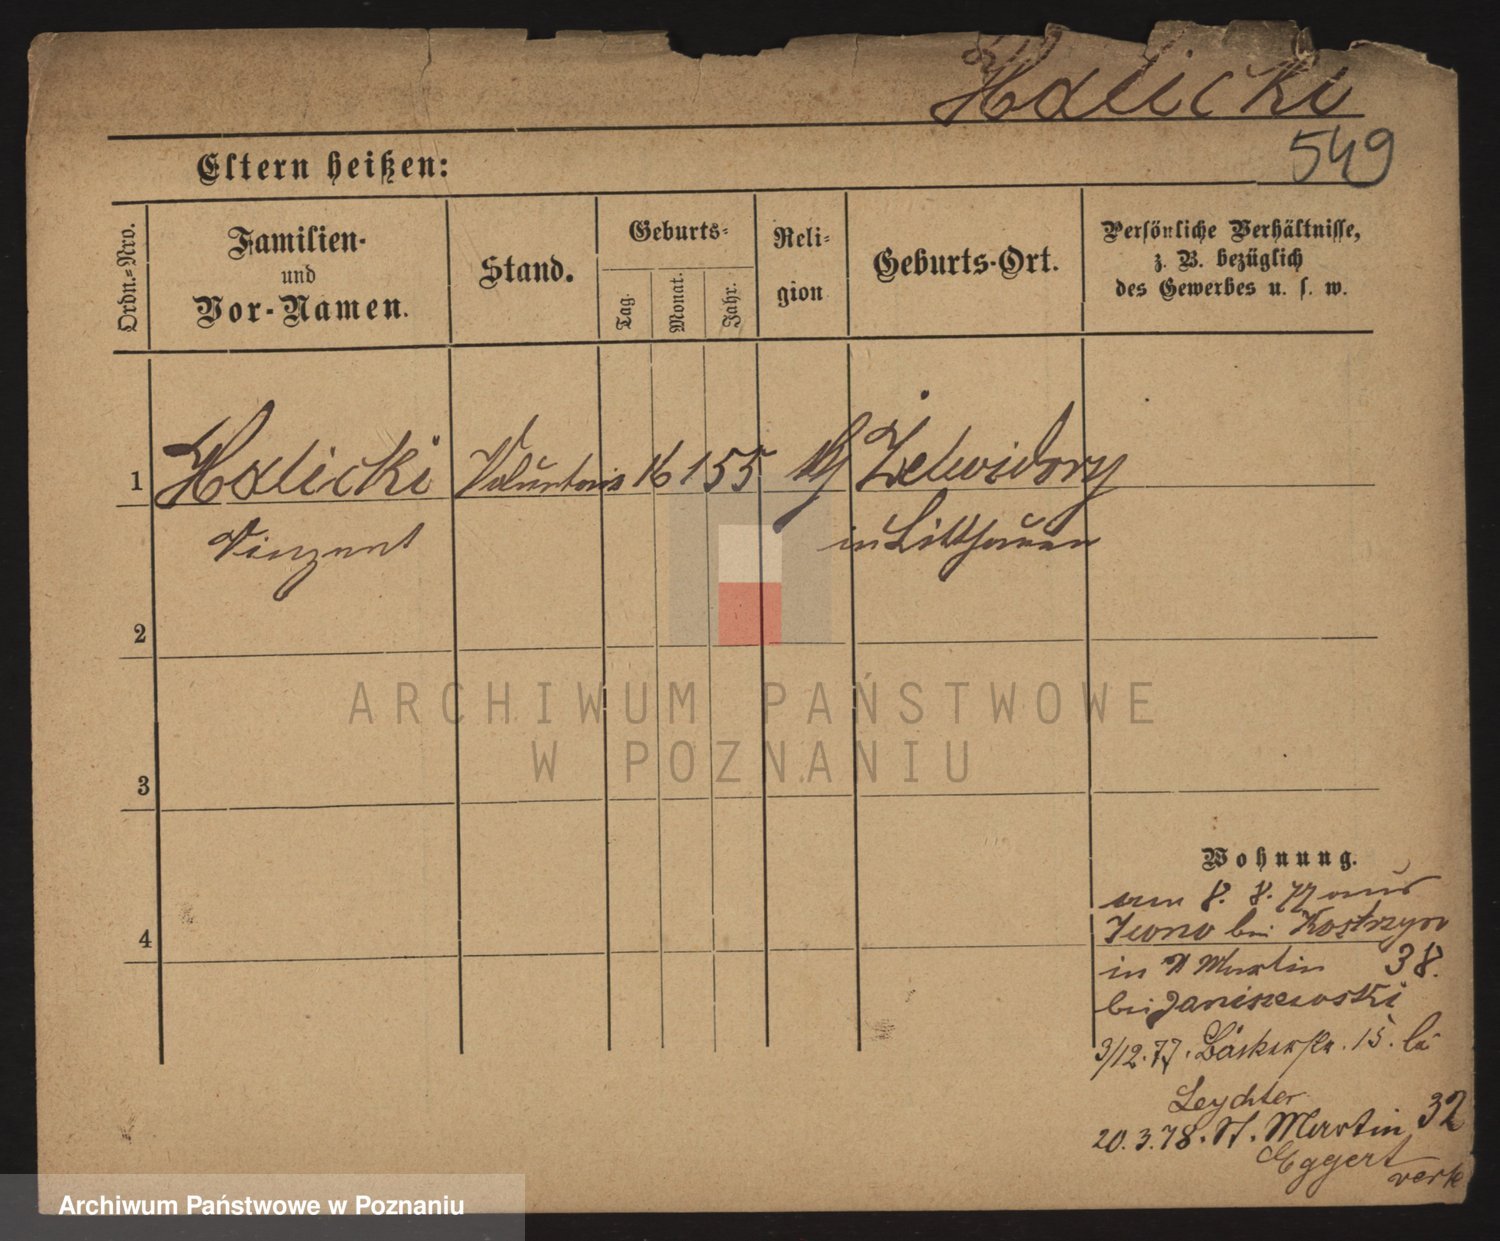 Halicki
549
Eltern heißen:
Ordn.-Nro.
Familien-
und
Vor-Namen.
Stand.
Geburts-
Tag.
Monat.
Jahr.
Reli-
gion
Geburts-Ort.
Persönliche Verhältnisse,
z. B. bezüglich
des Gewerbes u. s. w.
1 Halicki Voluntair 16 1 55
Vinzent in Litthauen
2
3
4
Wohnung.
am 8. 8. 77 aus
Iwno bei Kostrzyn
in St Martin 38.
bei Janiszewski
3/12.77. Bäckerstr. 15. bei
Leychter
20.3.78. St. Martin 32
Eggert
ARCHIWUM PAŃSTWOWE
W POZNANIU
Archiwum Państwowe w Poznaniu